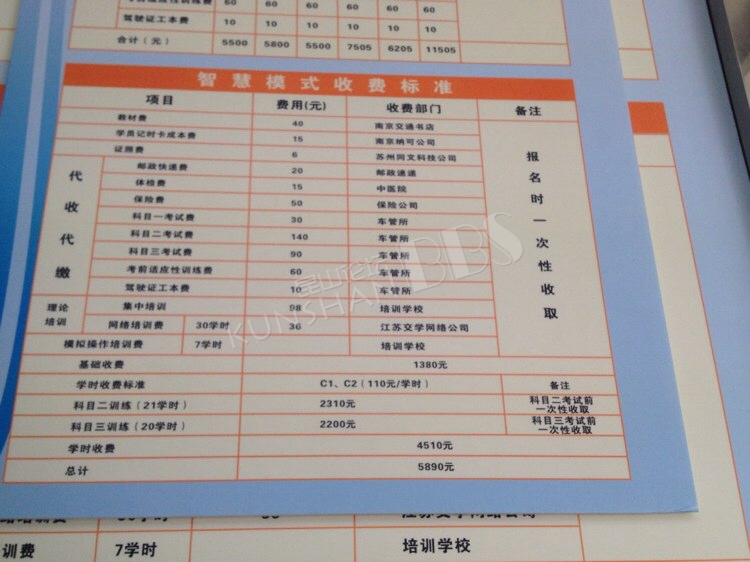 60 60 60 60 60
驾驶证工本费 10 10 10 10 10 10
合计（元） 5500 5800 5500 7505 6205 11505
智慧模式收费标准
项目 费用(元) 收费部门 备注
教材费 40 南京交通书店
学员记时卡成本费 15 南京纳可公司
证照费 6 苏州同文科技公司
代收代缴
邮政快递费 20 邮政速递
体检费 15 中医院
保险费 50 保险公司
科目一考试费 30 车管所
科目二考试费 140 车管所
科目三考试费 90 车管所
考前适应性训练费 60 车管所
驾驶证工本费 10 车管所
报名时一次性收取
理论培训
集中培训 98 培训学校
网络培训费 30学时 36 江苏交学网络公司
模拟操作培训费 7学时 培训学校
基础收费 1380元
学时收费标准 C1、C2（110元/学时） 备注
科目二训练（21学时） 2310元 科目二考试前
一次性收取
科目三训练（20学时） 2200元 科目三考试前
一次性收取
学时收费 4510元
总计 5890元
训费 7学时 培训学校
KUNSHAN BBS